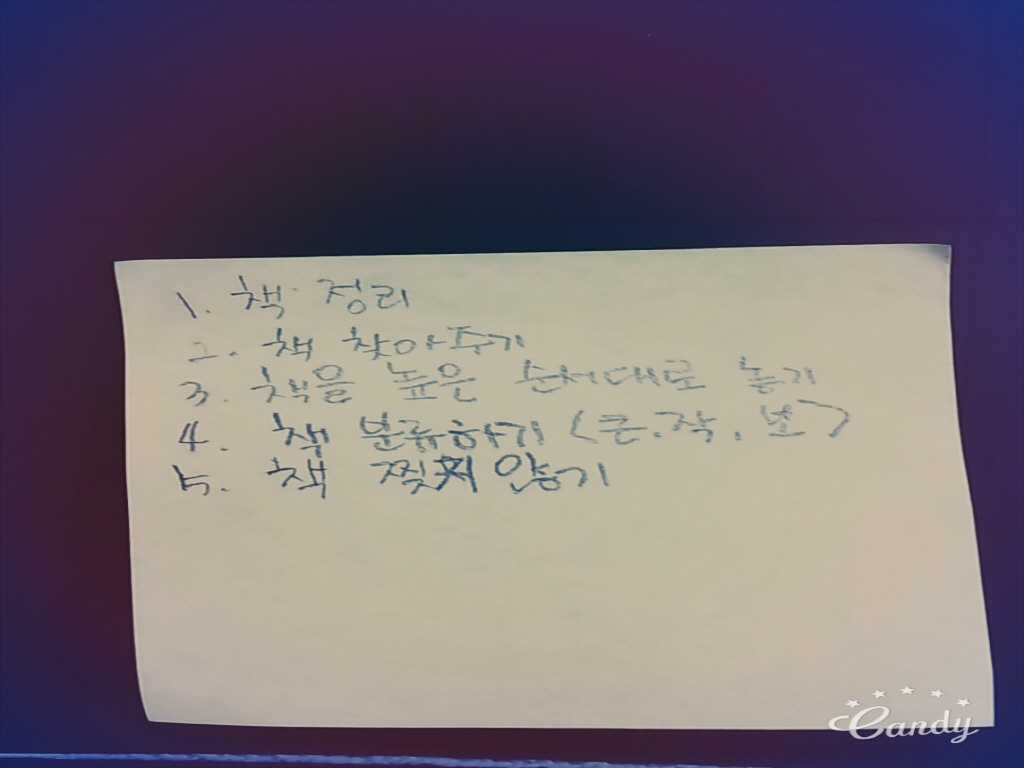 1. 책 정리
2. 책 찾아주기
3. 책을 높은 순서대로 놓기
4. 책 분류하기 (큰, 작, 보)
5. 책 찢지 않기
Candy